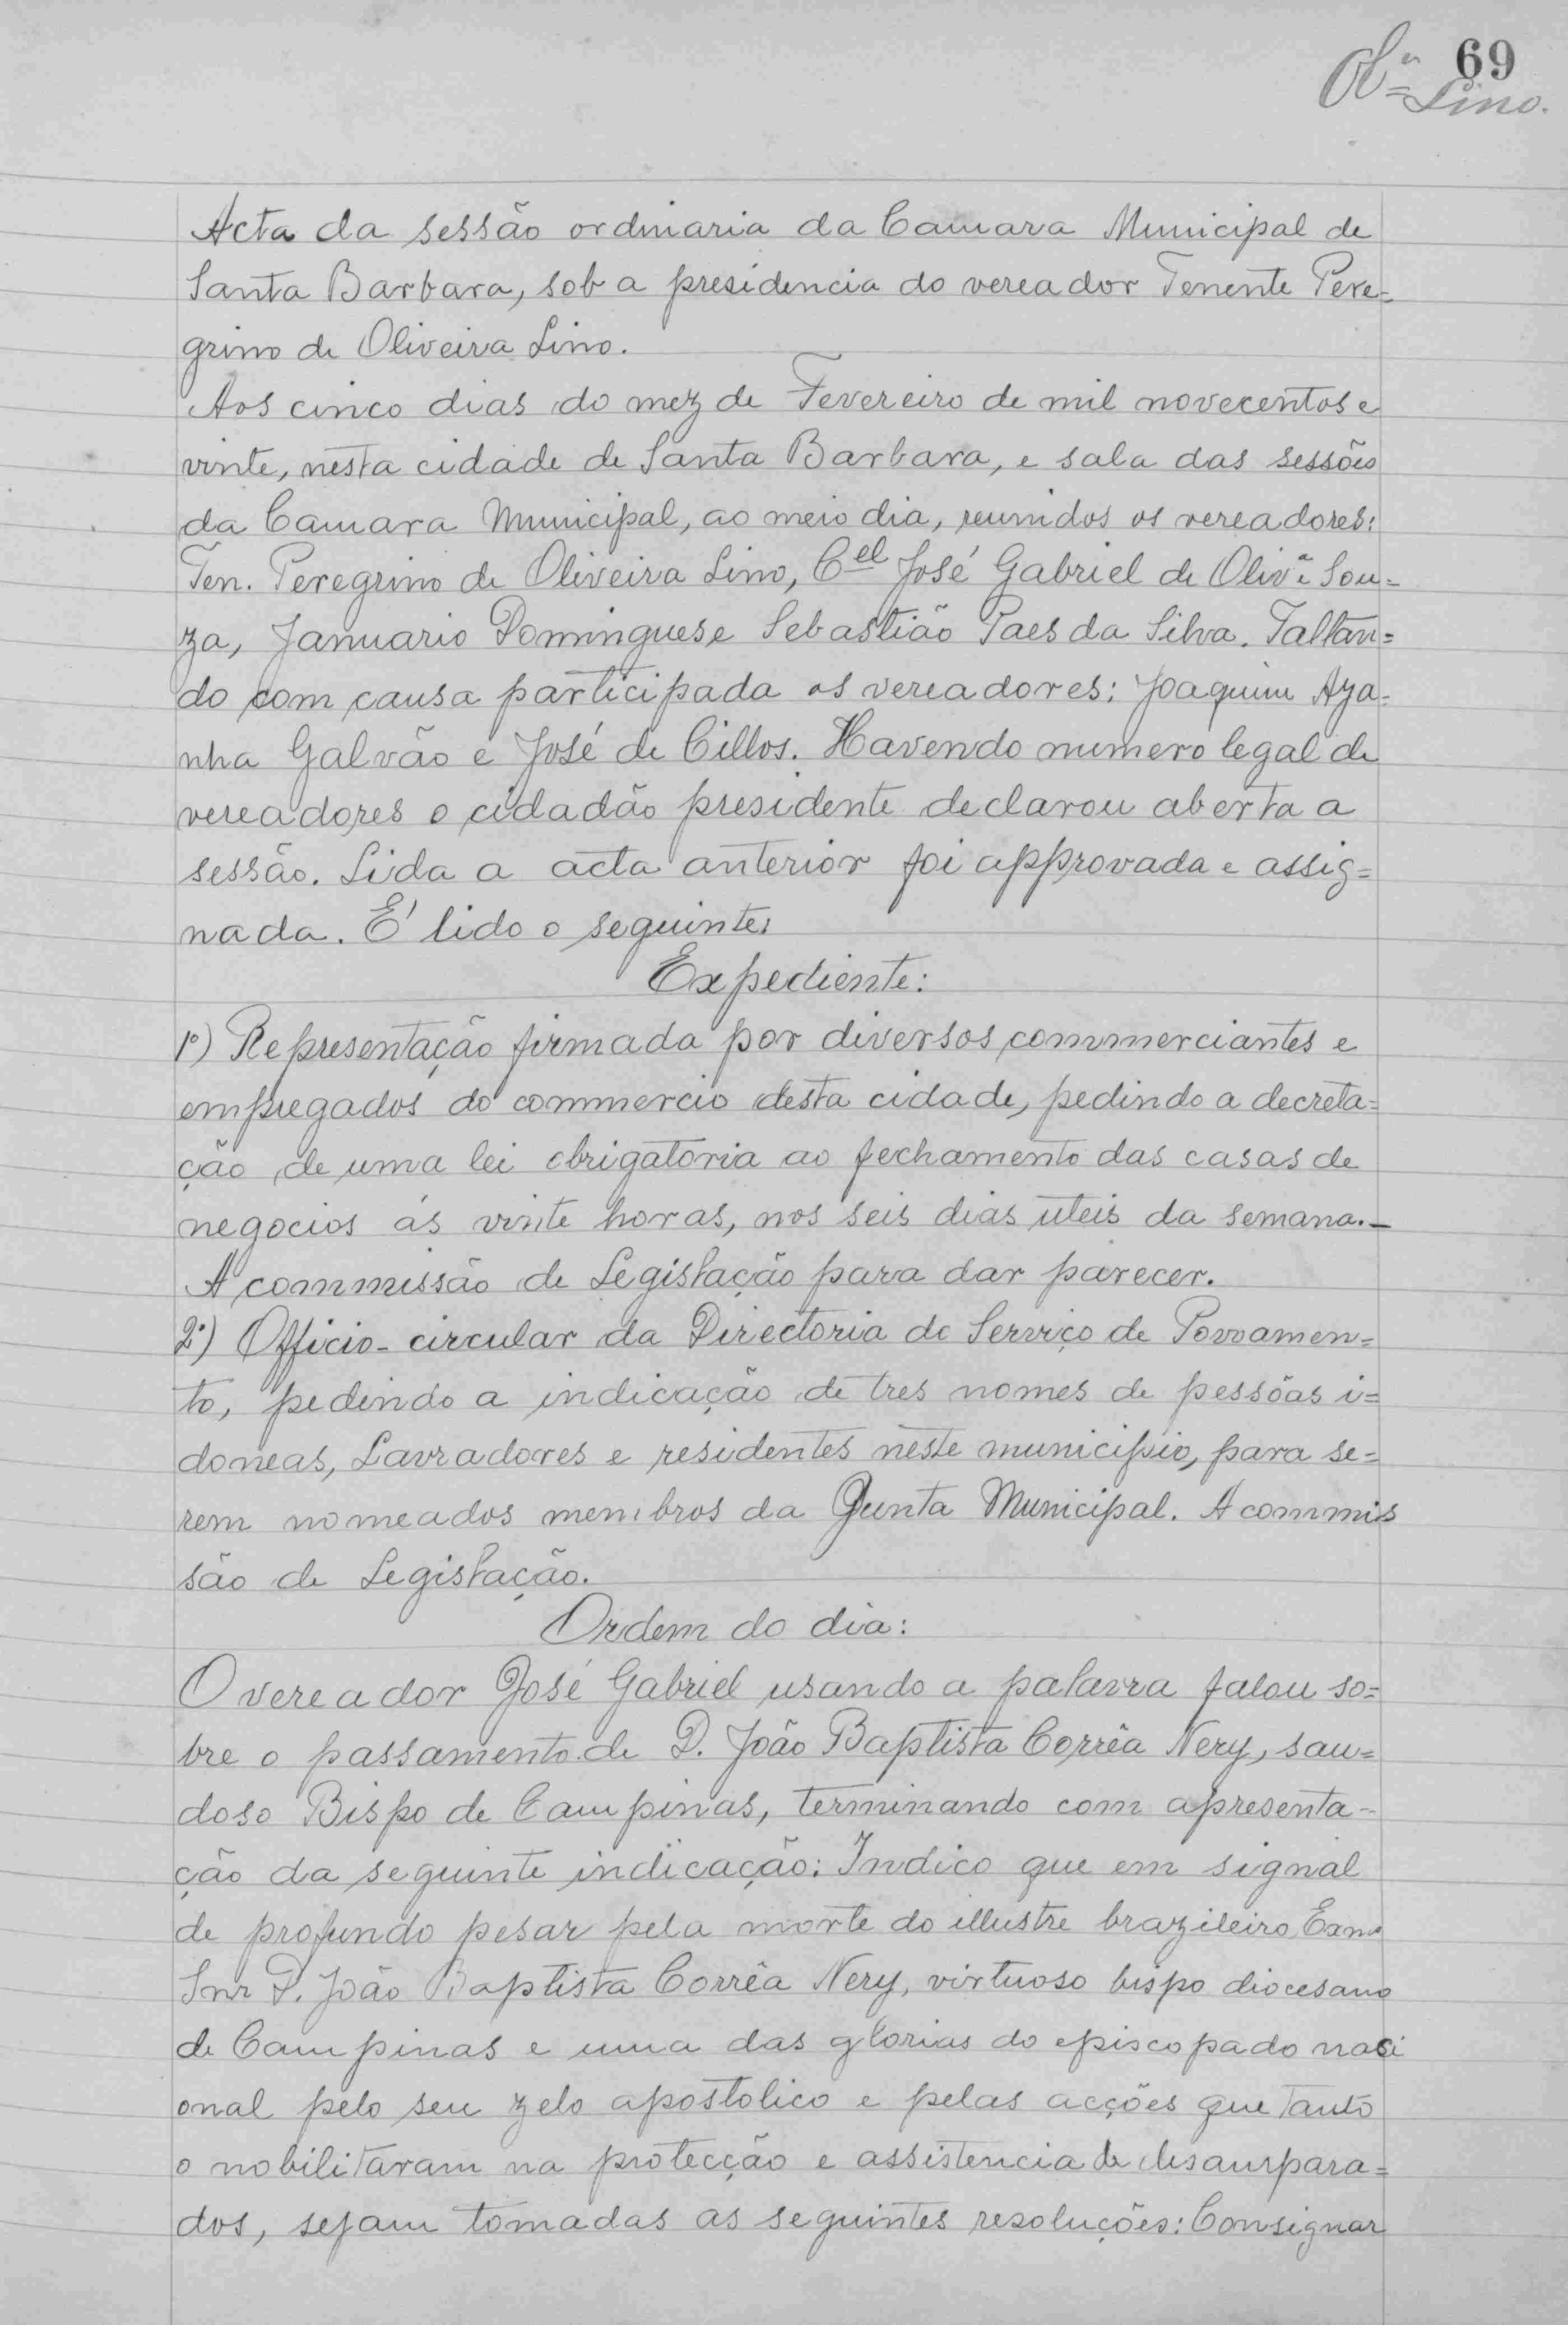 69
Olª Lino.
Acta da sessão ordinaria da Camara Municipal de
Santa Barbara, sob a presidencia do vereador Tenente Pere=
grino de Oliveira Lino.
Aos cinco dias do mez de Fevereiro de mil novecentos e
vinte, nesta cidade de Santa Barbara, e sala das sessões
da Camara Municipal, ao meio dia, reunidos os vereadores:
Ten. Peregrino de Oliveira Lino, Cel José Gabriel de Olivª Sou=
za, Januario Domingues e Sebastião Paes da Silva. Faltan=
do com causa participada os vereadores: Joaquim Aza=
nha Galvão e José de Cillos. Havendo numero legal de
vereadores o cidadão presidente declarou aberta a
sessão. Lida a acta anterior foi approvada e assig=
nada. É lido o seguinte:
Expediente:
1º) Representação firmada por diversos commerciantes e
empregados do commercio desta cidade, pedindo a decreta=
ção de uma lei obrigatoria ao fechamento das casas de
negocios ás vinte horas, nos seis dias uteis da semana.—
A commissão de Legislação para dar parecer.
2º) Officio-circular da Directoria do Serviço de Povoamen=
to, pedindo a indicação de tres nomes de pessôas i=
doneas, Lavradores e residentes neste municipio, para se=
rem nomeados membros da Junta Municipal. A commis
são de Legislação.
Ordem do dia:
O vereador José Gabriel usando a palavra falou so=
bre o passamento de D. João Baptista Corrêa Nery, sau=
doso Bispo de Campinas, terminando com apresenta-
ção da seguinte indicação: Indico que em signal
de profundo pesar pela morte do illustre brazileiro Exmo
Snr D. João Baptista Corrêa Nery, virtuoso bispo diocesano
de Campinas e uma das glorias do episcopado naci
onal pelo seu zelo apostolico e pelas acções que tanto
o nobilitaram na protecção e assistencia de desampara=
dos, sejam tomadas as seguintes resoluções: Consignar